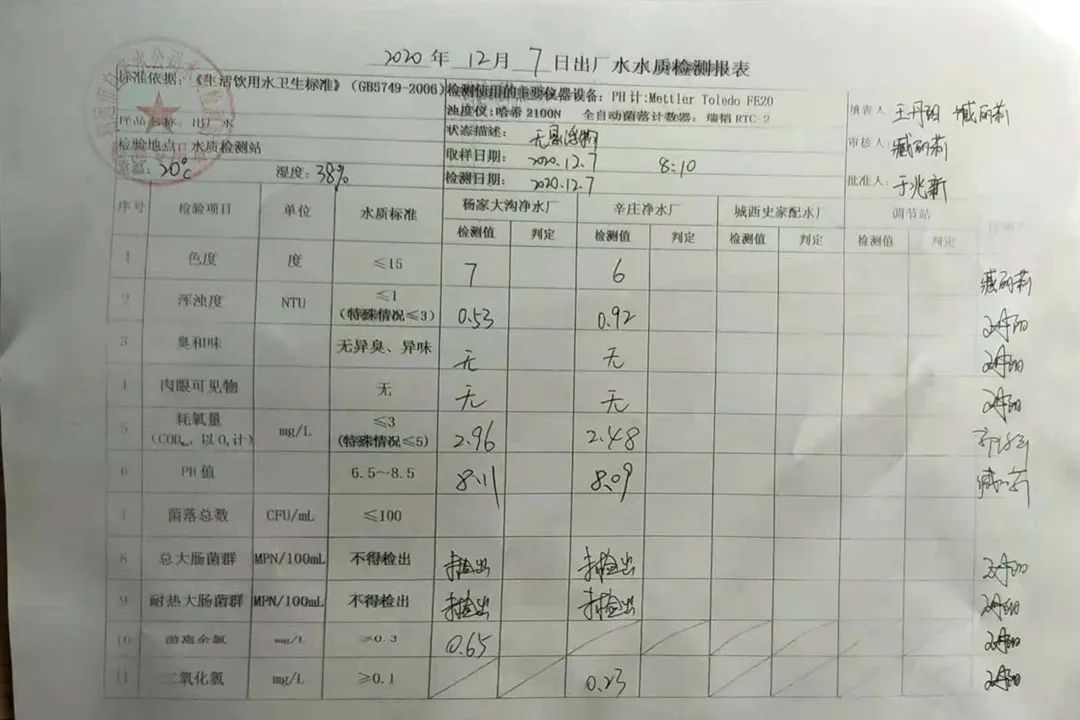 2020 年 12月 7 日出厂水水质检测报表
标准依据：《生活饮用水卫生标准》（GB5749-2006）
检测使用的主要仪器设备：PH 计:Mettler Toledo FE20
浊度仪:哈希 2100N 全自动菌落计数器：瑞韬 RTC-2
样品名称：出厂水
状态描述：
检验地点：水质检测站
取样日期： 2020.12.7 8:10
室温：20℃ 湿度：38%
检测日期： 2020.12.7
填表人 王丹阳 臧丽莉
审核人 臧丽莉
批准人 于兆新
序号 检验项目 单位 水质标准 杨家大沟净水厂 辛庄净水厂 城西史家配水厂 调节站
检测值 判定 检测值 判定 检测值 判定 检测值 判定
1 色度 度 ≤15 7 6 臧丽莉
2 浑浊度 NTU ≤1 (特殊情况≤3) 0.53 0.92
3 臭和味 无异臭、异味 无 无
4 肉眼可见物 无 无 无
5 耗氧量 (CODMn，以O2计) mg/L ≤3 (特殊情况≤5) 2.96 2.48
6 PH值 6.5~8.5 8.11 8.09
7 菌落总数 CFU/mL ≤100
8 总大肠菌群 MPN/100mL 不得检出 未检出 未检出
9 耐热大肠菌群 MPN/100mL 不得检出 未检出 未检出
10 游离余氯 mg/L ≥0.3 0.65
11 二氧化氯 mg/L ≥0.1 0.23